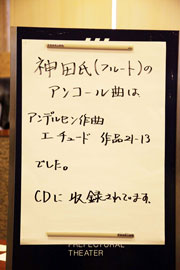 神田氏(フルート)の
アンコール曲は
アンデルセン作曲
エチュード 作品21-13
でした。
CDに収録されています。
PREFECTURAL
THEATER